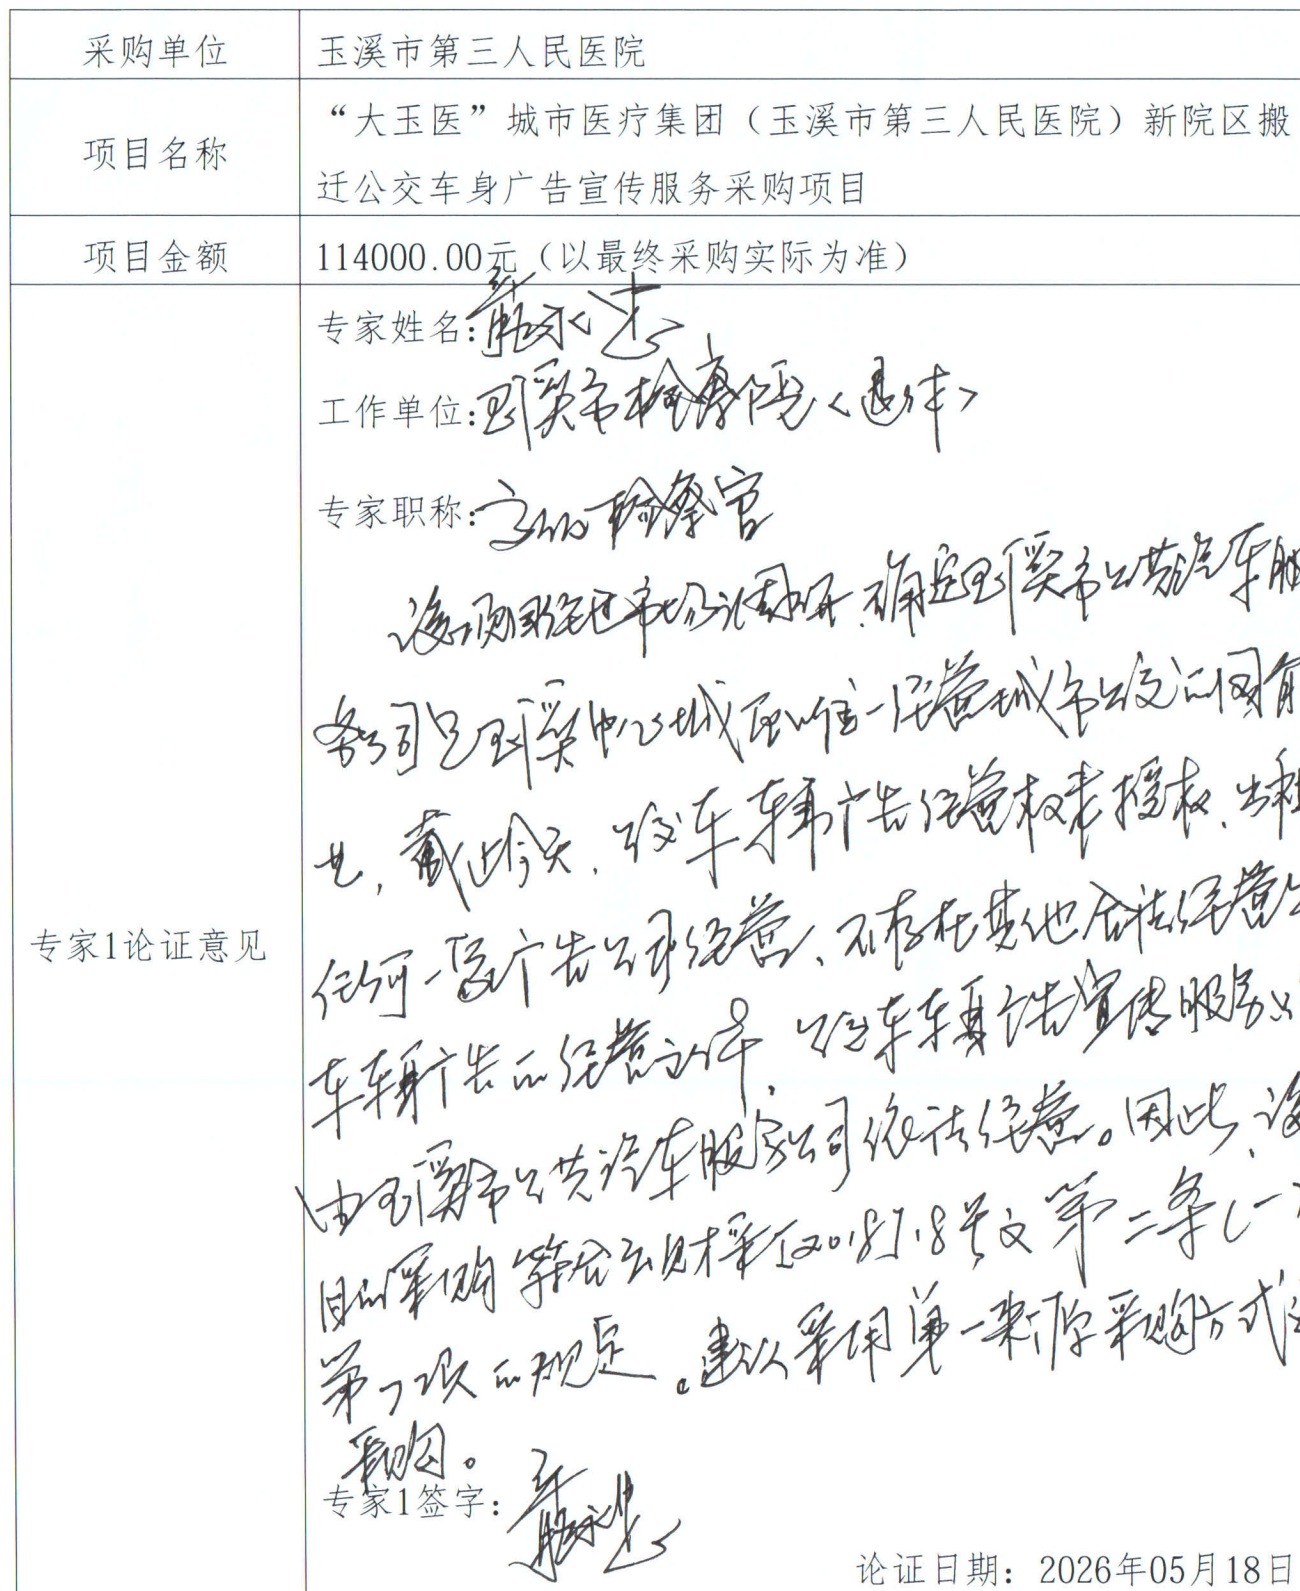 采购单位
玉溪市第三人民医院
项目名称
“大玉医”城市医疗集团（玉溪市第三人民医院）新院区搬
迁公交车身广告宣传服务采购项目
项目金额
114000.00元（以最终采购实际为准）
专家1论证意见
专家姓名:
工作单位:玉溪市检察院<退休>
专家职称:高级检察官
该项目经过市场调研、确定玉溪市公共汽车服
务公司是玉溪中心城区唯一经营城市公交的国有
截止今天、公交车车身广告经营权未授权、出租
任何一家广告公司经营、不存在其他合法经营公
车车身广告的经营 公交车车身广告宣传服务
由玉溪市公共汽车服务公司依法经营。因此、该
目的采购符合云财采[2018]18号文第二条(一)
第 项的规定。建议采用单一来源采购方式
采购。
专家1签字:
论证日期: 2026年05月18日